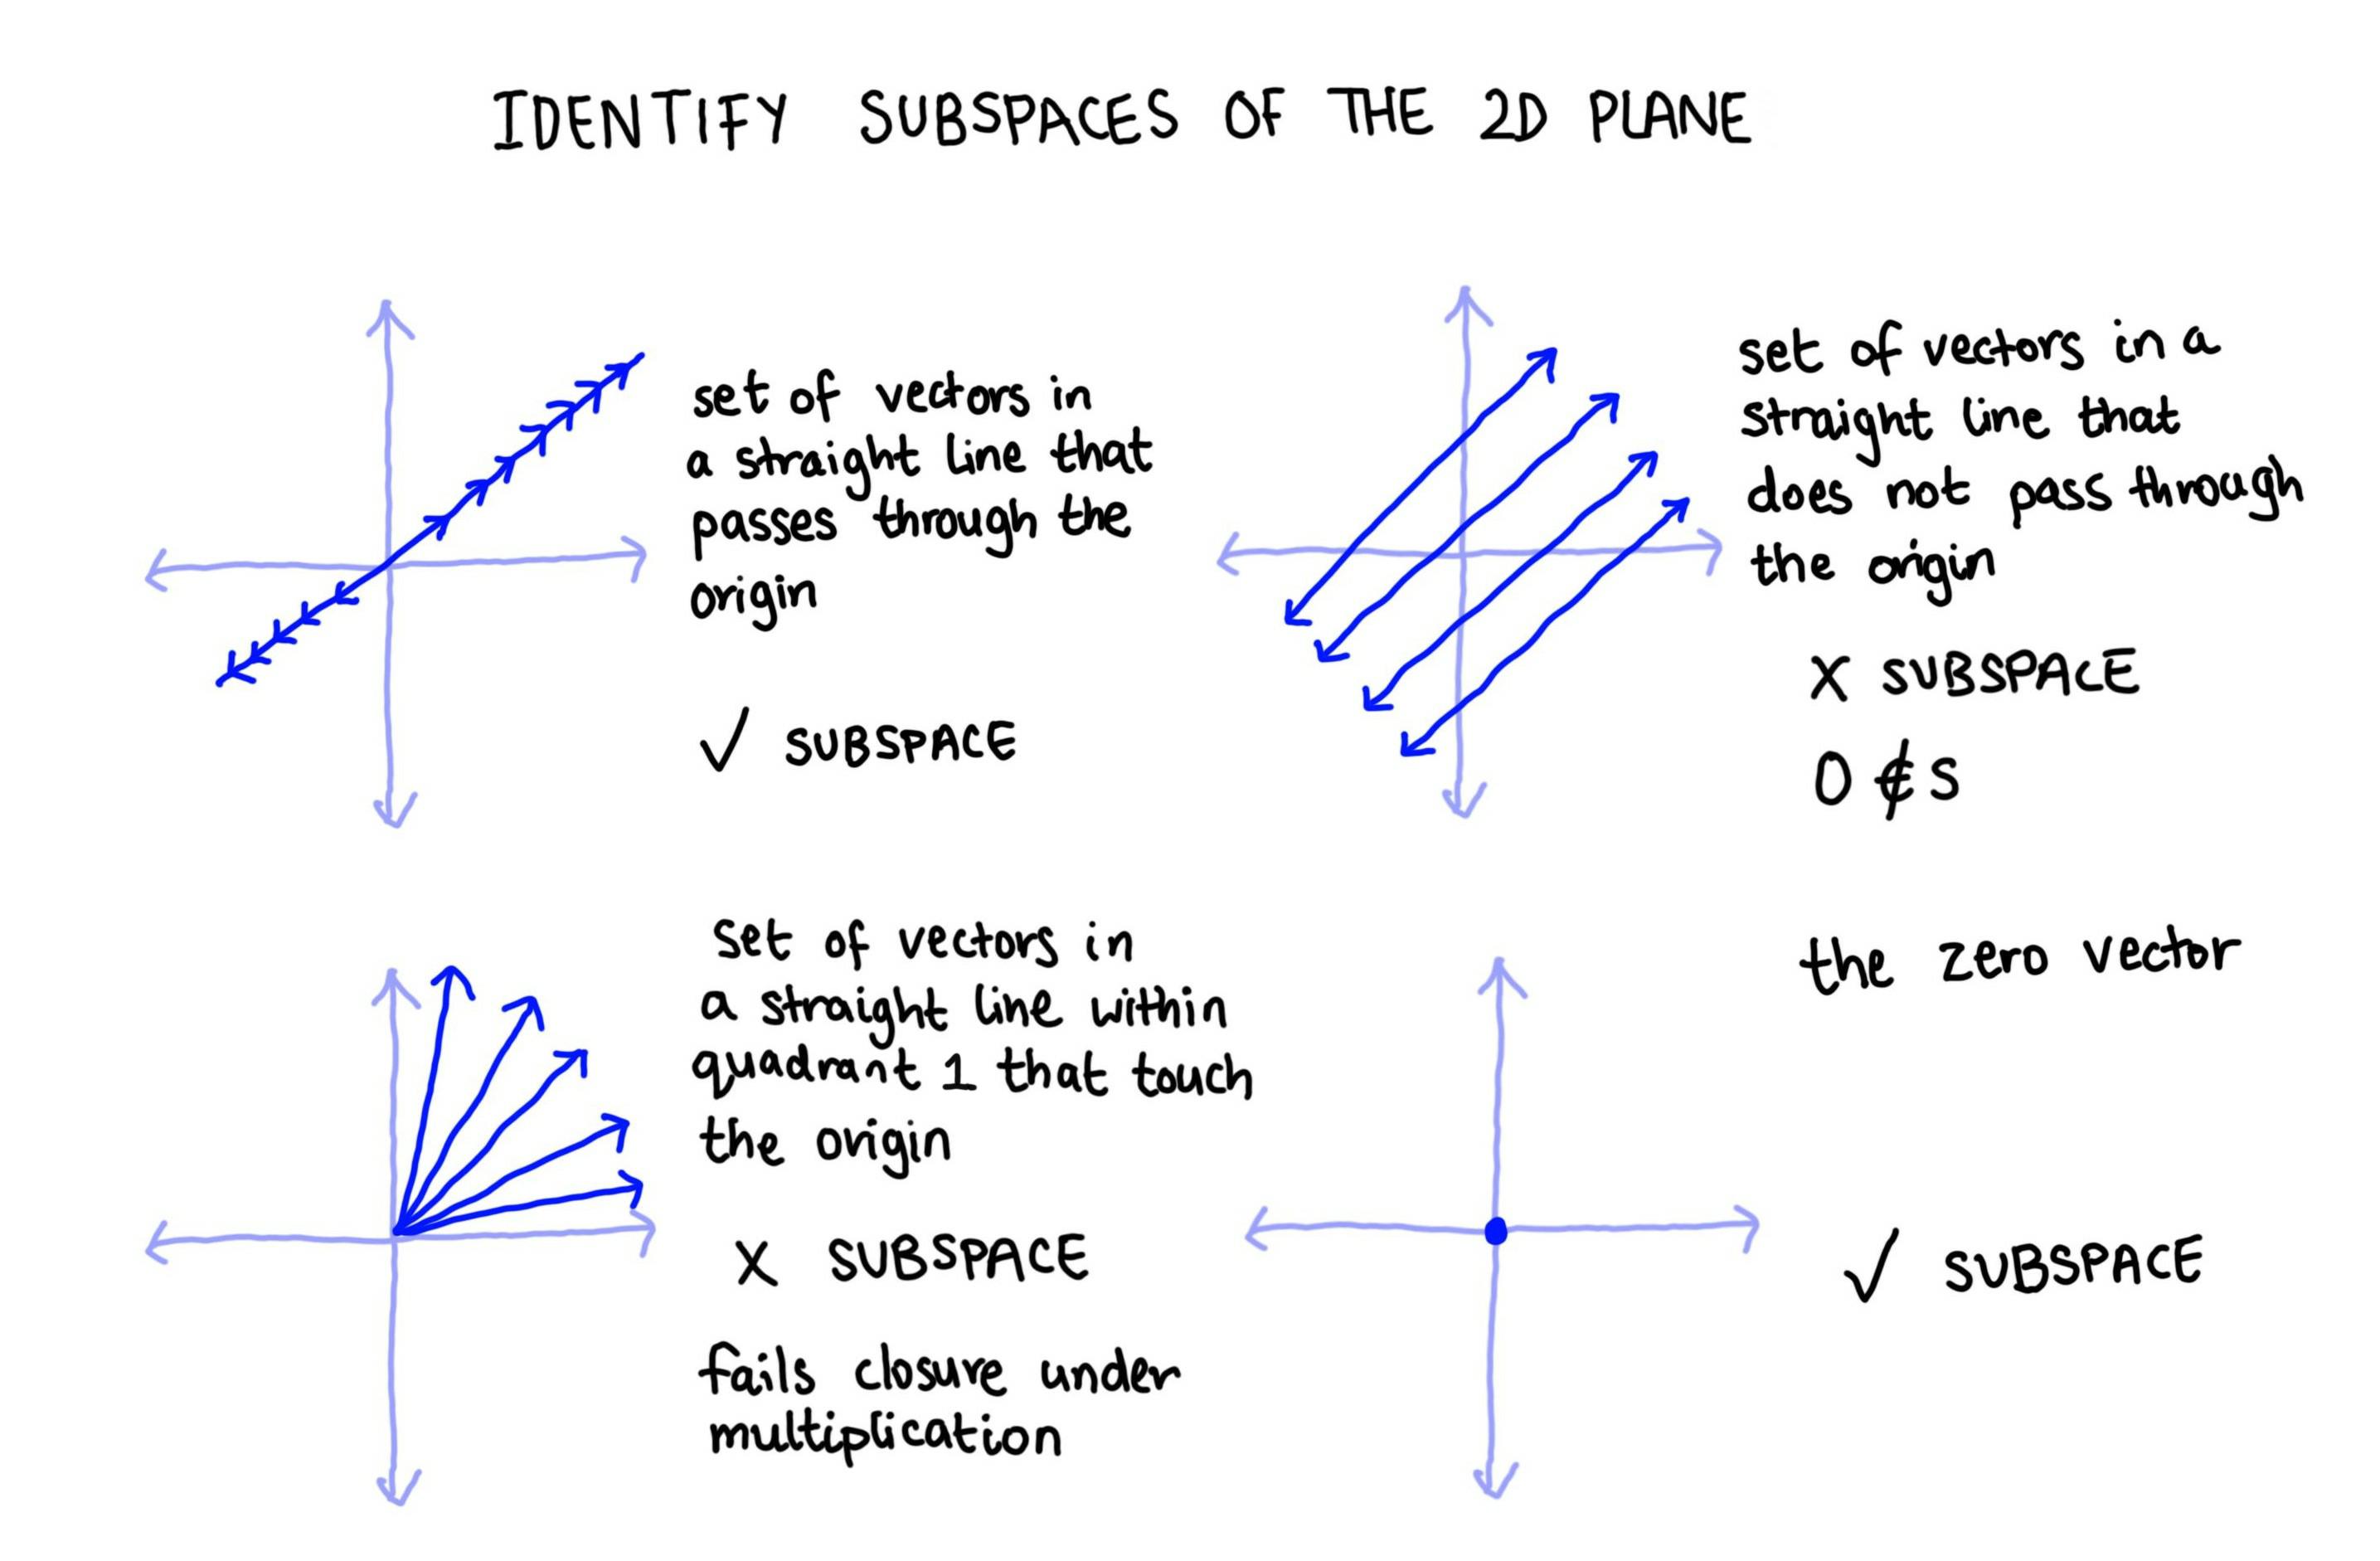 IDENTIFY SUBSPACES OF THE 2D PLANE
set of vectors in
a straight line that
passes through the
origin
✓ SUBSPACE
set of vectors in a
straight line that
does not pass through
the origin
X SUBSPACE
0 ∉ S
set of vectors in
a straight line within
quadrant 1 that touch
the origin
X SUBSPACE
fails closure under
multiplication
the zero vector
✓ SUBSPACE